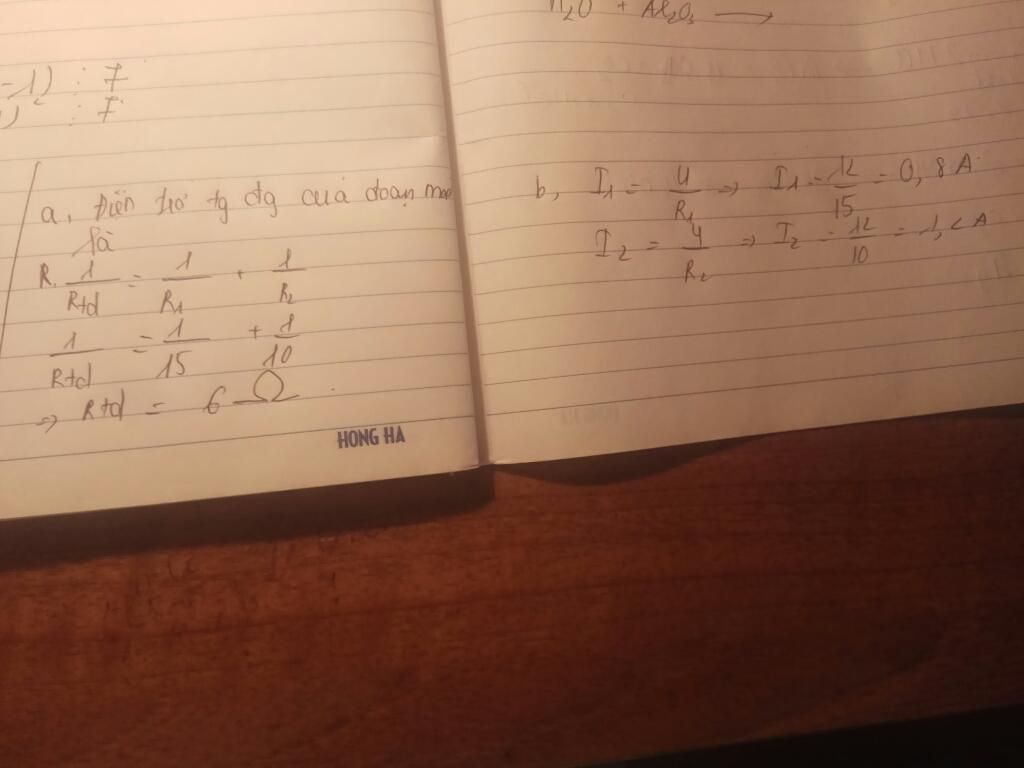 -1) : 7
: 7
a, Điện trở tg đg của đoạn mạc
là
R. 1/Rtd = 1/R1 + 1/R2
1/Rtd = 1/15 + 1/10
=> Rtd = 6 Ω.
HONG HA
H2O + Al2O3 →
b, I1 = U/R1 => I1 = 12/15 = 0,8 A
I2 = U/R2 => I2 = 12/10 = 1,2 A